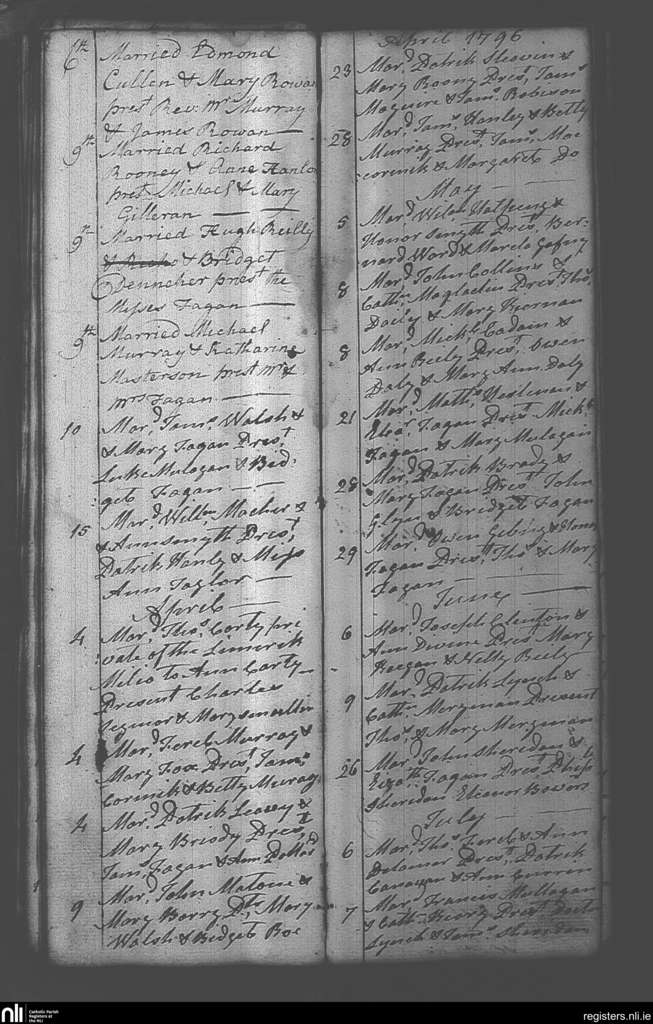 6th Married Edmond
Cullen & Mary Rowan
prest Rev. Mr Murray
& James Rowan
9th Married Richard
Rooney & Anne Hanlo
prest Michael & Mary
Gilleran
9th Married Hugh Reilly
& Bridget
Dennaher prest the
Misses Fagan
9th Married Michael
Murray & Katharine
Masterson prest Mr &
Mrs Fagan
10 Mar.d Jams Walsh &
& Mary Fagan Prest
Luke Mulagan & Brid-
get Fagan
15 Mar.d Willm Maher &
& Ann Smyth Prest
Patrick Hanly & Miss
Ann Taylor
April
4 Mar.d Thos Carty pri
vate of the Limerick
Milia to Ann Carty
Present Charles
& Mary
4 Mar.d Fereb Murray &
Mary Fox Prest Jams
Cormick & Betty Murray
4 Mar.d Patrick Leavy &
Mary Briody Prest
Jams Fagan & Ann
9 Mar.d John Matone &
Mary Berry Pt Mary
Walsh & Bidget Roe
April 1796
23 Mar.d Patrick Slevin &
Mary Roony Prest Jams
Maguire & Jams Robeson
28 Mar.d Jams Hanley & Betty
Murray Prest Jams Mac
cormick & Margaret Do
May
5 Mar.d Wilm &
Honor Smyth Prest Ber-
nard Ward & Marcla Gafney
8 Mar.d John Collins &
Cathn Prest Thos
Daily & Mary Kiernan
8 Mar.d Michl Cadam &
Ann Reily Prest Owen
Daly & Mary Ann Daly
21 Mar.d Matths &
Elear Fagan Prest Michl
Fagan & Mary Mulagan
28 Mar.d Patrick Brady &
Mary Fagan Prest John
Glynn & Bredget Fagan
29 Mar.d Owen &
Fagan Prest Thos & Mary
Fagan
June
6 Mar.d Joseph Clinton &
Ann Divine Prest Mary
Keegan & Nelly Reily
9 Mar.d Patrick Lynch &
Cathn Mergman Present
Thos & Mary Mergman
26 Mar.d John Sheridan &
Elizath Fagan Prest Philip
Sheridan Eleanor Bowers
July
6 Mar.d Thos Fereb & Ann
Delamar Prest Patrick
Canavan & Ann Curren
7 Mar.d Francis Mullagan
& Cathn Henry Prest
Lynch & Jams Sheridan
nli
Catholic Parish
Registers at
the NLI
registers.nli.ie